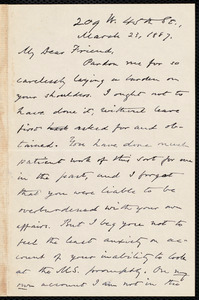 209 W. 45th St.,
March 23, 1887.
My Dear Friend,
Pardon me for so
carelessly laying a burden on
your shoulders. I ought not to
have done it, without leave
first asked for and ob-
tained. You have done much
patient work of this sort for me
in the past, and I forgot
that you were liable to be
overburdened with your own
affairs. But I beg you not to
feel the least anxiety on ac-
count of your inability to look
at the M.S. promptly. On my
own account I am not in the